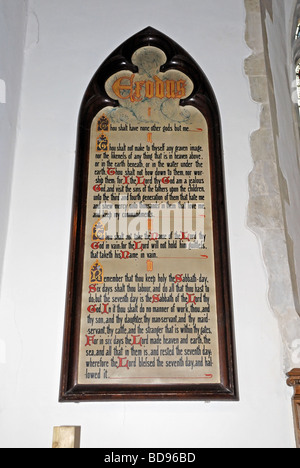 Exodus
I
Thou shalt have none other gods but me.
II
Thou shalt not make to thyself any graven image,
nor the likeness of any thing that is in heaven above,
or in the earth beneath, or in the water under the
earth. Thou shalt not bow down to them, nor wor-
ship them, for I the Lord thy God am a jealous
God, and visit the sins of the fathers upon the children,
unto the third and fourth generation of them that hate
me and shew mercy unto thousands in them that love me,
and keep my commandments.
III
Thou shalt not take the Name of the Lord thy
God in vain, for the Lord will not hold him guiltless that
taketh his Name in vain.
IV
Remember that thou keep holy the Sabbath-day,
Six days shalt thou labour, and do all that thou hast to
do, but the seventh day is the Sabbath of the Lord thy
God. In it thou shalt do no manner of work, thou, and
thy son, and thy daughter, thy man-servant, and thy maid-
servant, thy cattle, and the stranger that is within thy gates.
For in six days the Lord made heaven and earth, the
sea, and all that in them is, and rested the seventh day;
wherefore the Lord blessed the seventh day, and hal-
lowed it.
alamy
Image ID: BD96BD
www.alamy.com